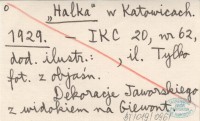 „Halka" w Katowicach.
1929. – IKC 20, nr 62,
dod. ilustr.: , il. Tylko
fot. z objaśn.
Dekoracje Jaworskiego
z widokiem na Giewont.